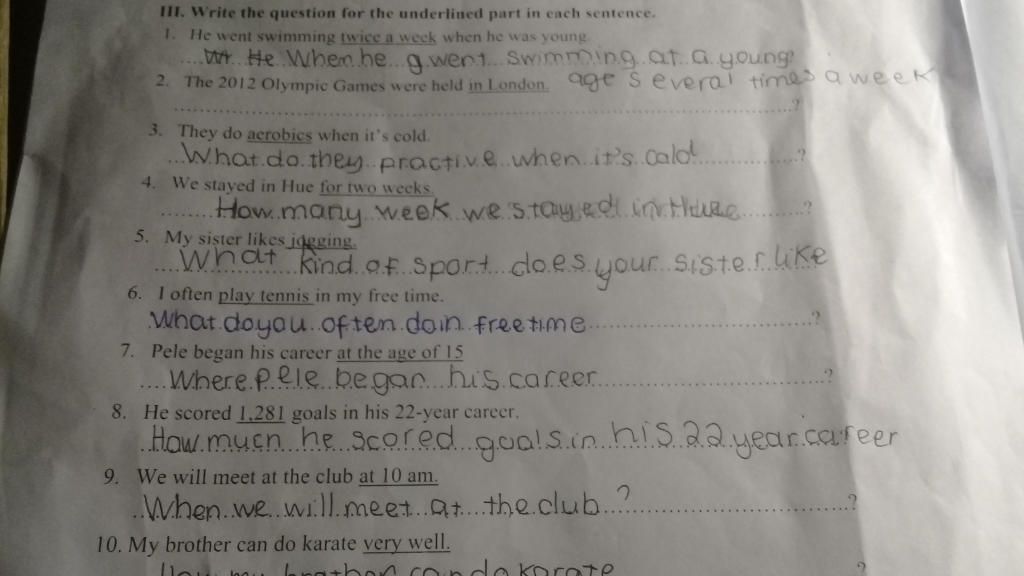 III. Write the question for the underlined part in each sentence.
1. He went swimming twice a week when he was young.
He When he went swimming at a young
age several times a week
2. The 2012 Olympic Games were held in London.
?
3. They do aerobics when it's cold.
What do they practive when it's cold ?
4. We stayed in Hue for two weeks.
How many week we stayed in Huze ?
5. My sister likes jogging.
What kind of sport does your sister like
6. I often play tennis in my free time.
What do you often do in free time ?
7. Pele began his career at the age of 15
Where Pele began his career ?
8. He scored 1,281 goals in his 22-year career.
How much he scored goals in his 22 year career
9. We will meet at the club at 10 am.
When we will meet at the club ? ?
10. My brother can do karate very well.
How my brother can do karate ?